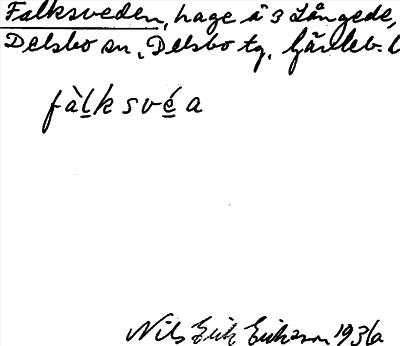 Falksveden, hage å 3 Långede,
Delsbo sn, Delsbo tg, Gävleb. l
fàlksvéa
Nils Erik Erikson 1936